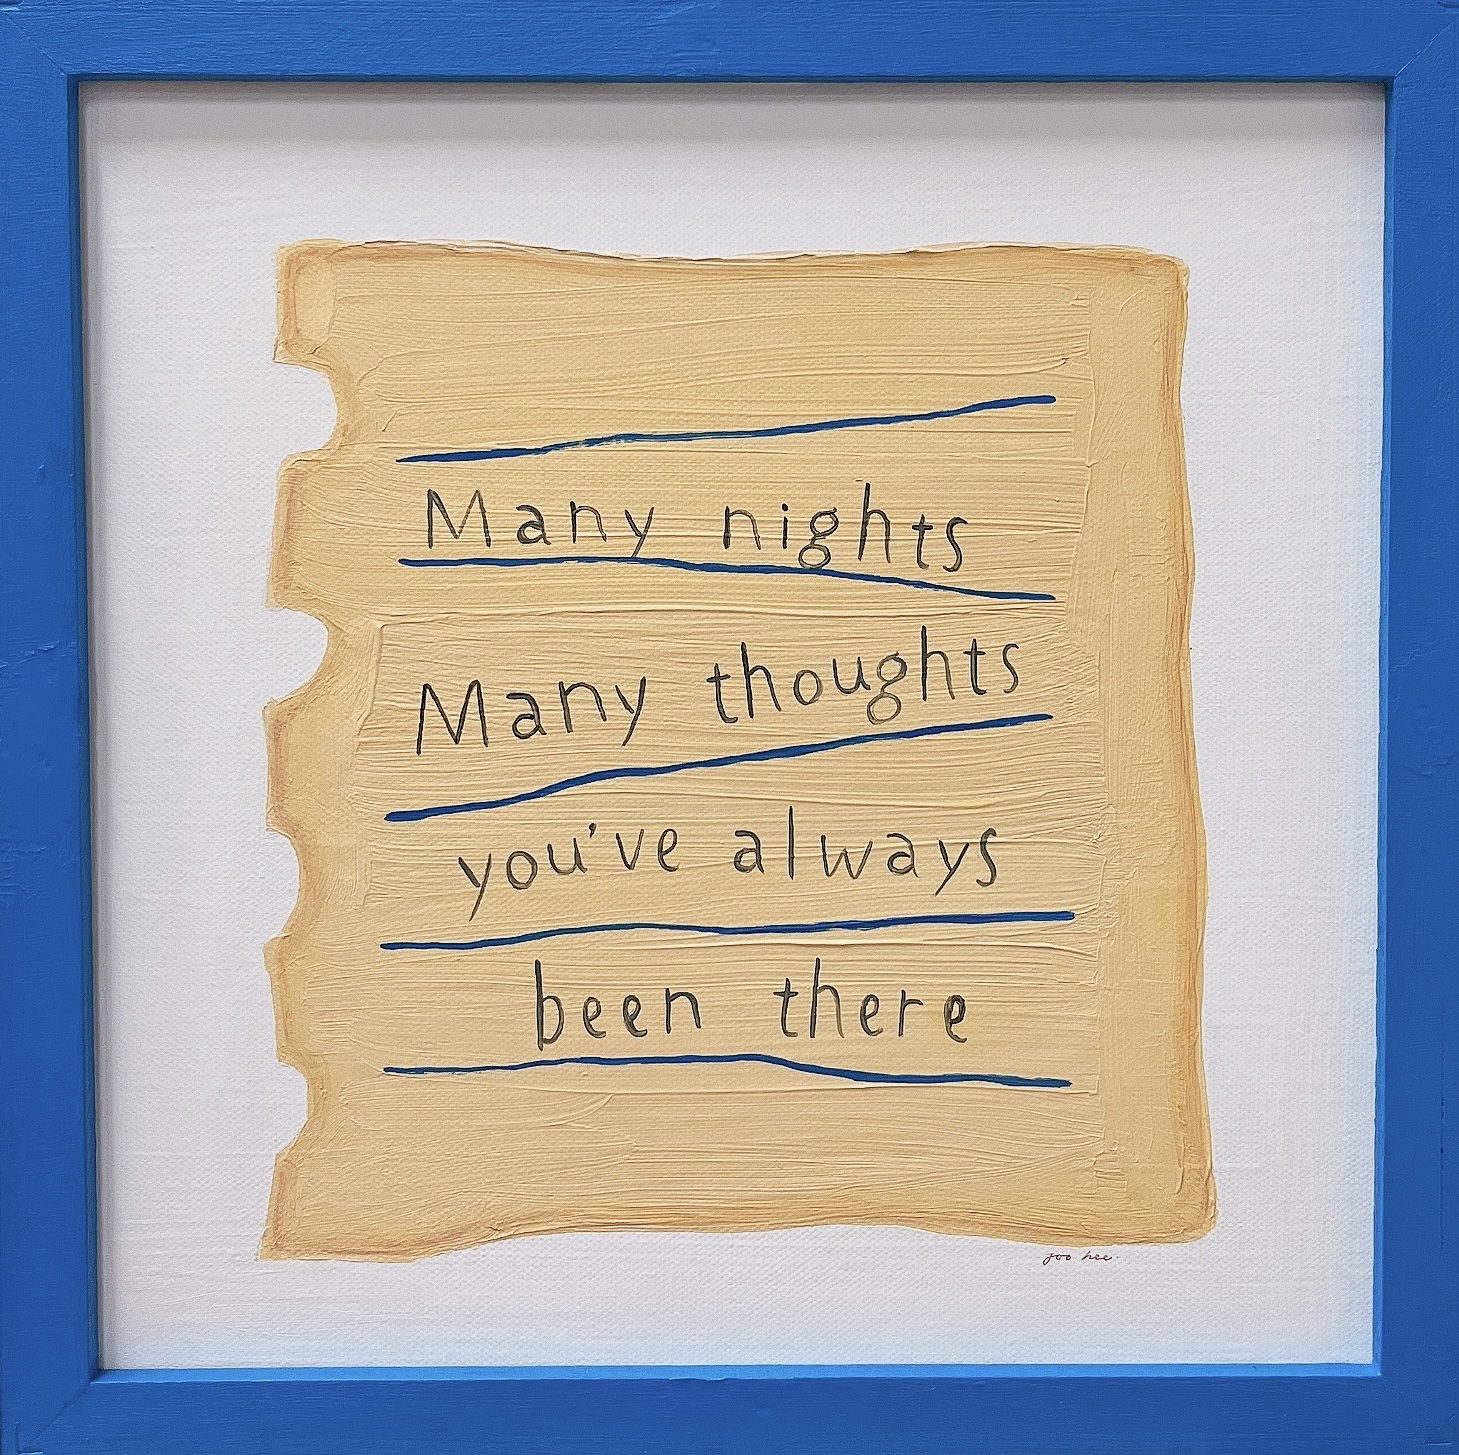 Many nights
Many thoughts
you've always
been there
joo hee.